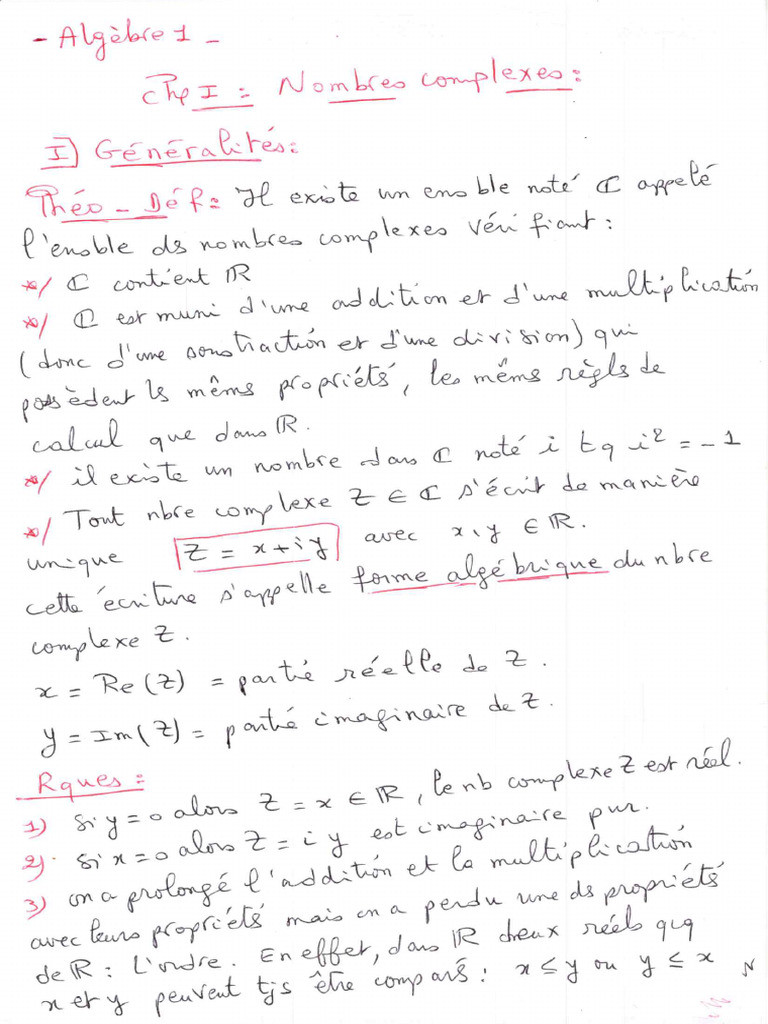 - Algèbre 1 -
Chp I : Nombres complexes :
I) Généralités :
Théo - Déf : Il existe un enble noté ℂ appelé
l'enble ds nombres complexes vérifiant :
*/ ℂ contient ℝ
*/ ℂ est muni d'une addition et d'une multiplication
(donc d'une soustraction et d'une division) qui
possèdent ls mêms propriétés, les mêms règls de
calcul que dans ℝ.
*/ il existe un nombre dans ℂ noté i tq i² = -1
*/ Tout nbre complexe Z ∈ ℂ s'écrit de manière
unique Z = x + i y avec x, y ∈ ℝ.
cette écriture s'appelle forme algébrique du nbre
complexe Z.
x = Re(Z) = partie réelle de Z.
y = Im(Z) = partie imaginaire de Z.
Rques :
1) Si y = 0 alors Z = x ∈ ℝ, le nb complexe Z est réel.
2) si x = 0 alors Z = i y est imaginaire pur.
3) on a prolongé l'addition et la multiplication
avec leurs propriétés mais on a perdu une ds propriétés
de ℝ : L'ordre. En effet, dans ℝ deux réels qcq
x et y peuvent tjs être comparés : x ≤ y ou y ≤ x